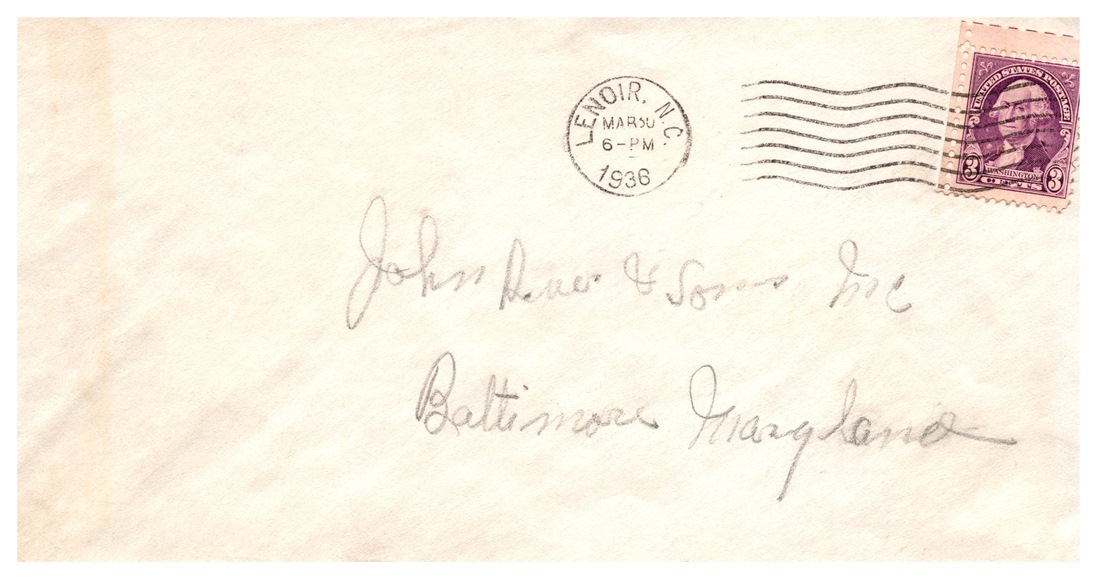 LENOIR, N.C.
MAR 30
6-PM
1936
UNITED STATES POSTAGE
3 WASHINGTON 3
CENTS
John & Sons Inc
Baltimore Maryland